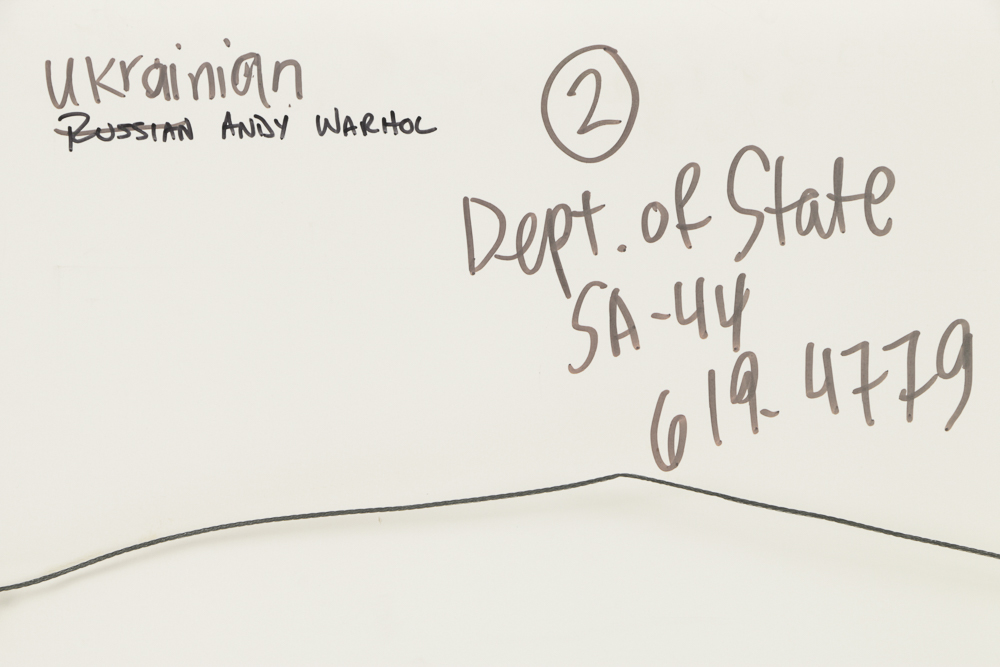 ukrainian
RUSSIAN ANDY WARHOL
2
Dept. of State
SA-44
619-4779